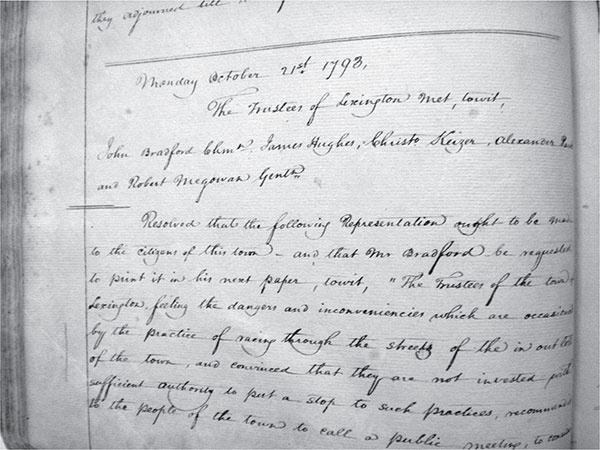 they adjourned till
Monday October 21st 1793,
The Trustees of Lexington Met, towit,
John Bradford Chmn. James Hughes, Christo Keizer, Alexander
and Robert Megowan Gentn.
Resolved that the following Representation ought to be
to the citizens of this town - and that Mr Bradford be requested
to print it in his next paper, towit, "The Trustees of the town
Lexington, feeling the dangers and inconveniencies which are occasioned
by the practice of racing through the streets of the in out
of the town, and convinced that they are not invested with
sufficient authority to put a stop to such practices, recommend
to the people of the town to call a public meeting, to